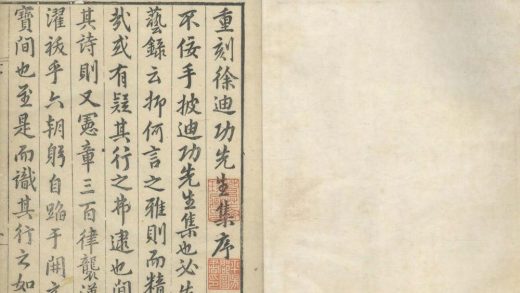 重刻徐迪功先生集序
不佞手披迪功先生集也必先
藝錄云抑何言之雅則而精
哉或有疑其行之弗逮也間
其詩則又憲章三百律襲漢
濯祓乎六朝躬自蹈于開
寶間也至是而識其行之如